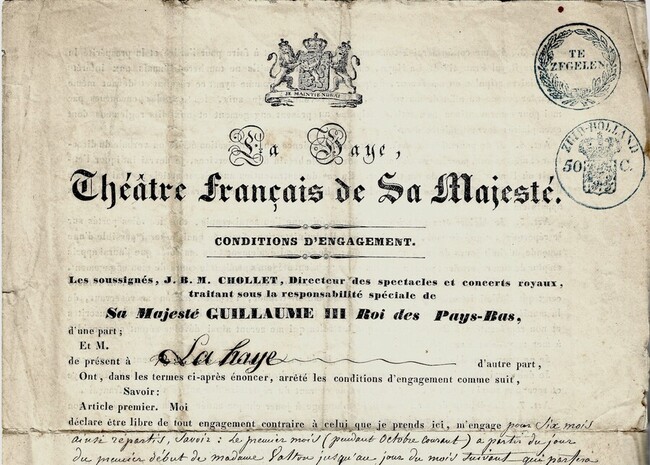 JE MAINTIENDRAI
TE
ZEGELEN
ZUID-HOLLAND
50 C.
La Haye,
Théâtre Français de Sa Majesté.
CONDITIONS D'ENGAGEMENT.
Les soussignés, J. B. M. CHOLLET, Directeur des spectacles et concerts royaux,
traitant sous la responsabilité spéciale de
Sa Majesté GUILLAUME III Roi des Pays-Bas,
d'une part;
Et M.
de présent à La haye d'autre part,
Ont, dans les termes ci-après énoncer, arrêté les conditions d'engagement comme suit,
Savoir:
Article premier. Moi
déclare être libre de tout engagement contraire à celui que je prends ici, m'engage pour Six mois
ainsi répartis, Savoir: Le premier mois (pendant Octobre Courant) a partir du jour
du premier début de madame jusqu'au jour du mois Suivant qui partira